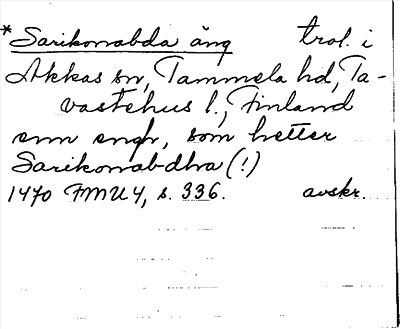 * Sarikorrabda äng trol. i
Akkas sn, Tammela hd, Ta-
vastehus l., Finland
enn engh, som hetter
Sarikorrabdha (!)
1470 FMU 4, s. 336. avskr.